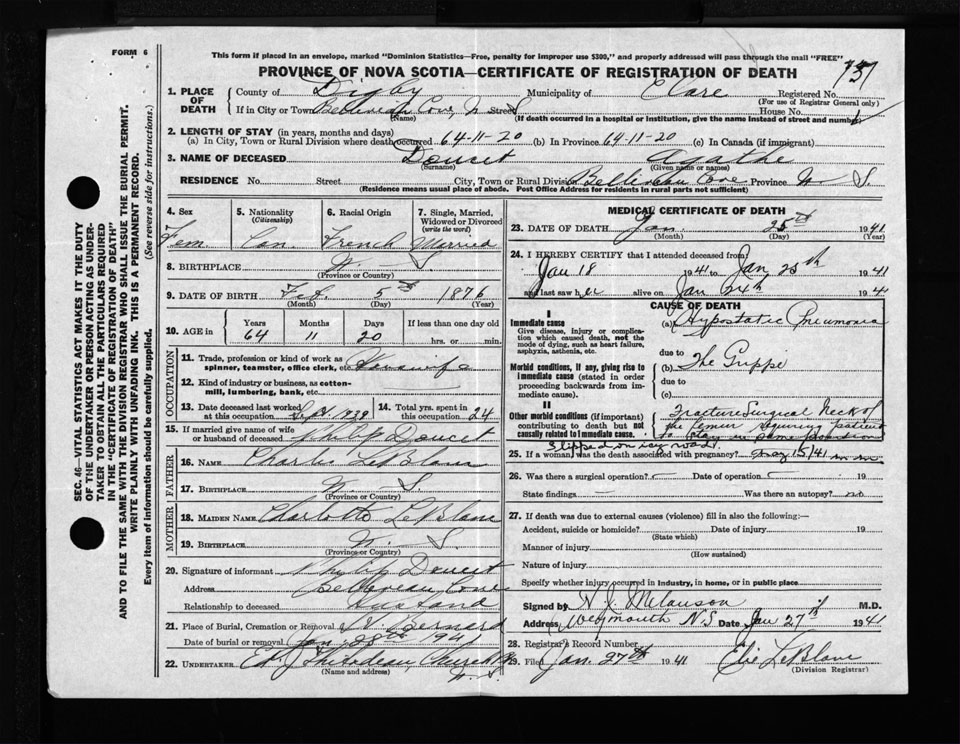 FORM 6
This form if placed in an envelope, marked "Dominion Statistics—Free, penalty for improper use $300," and properly addressed will pass through the mail "FREE"
PROVINCE OF NOVA SCOTIA—CERTIFICATE OF REGISTRATION OF DEATH
1. PLACE OF DEATH County of Digby Municipality of Clare Registered No.
(For use of Registrar General only)
If in City or Town Belliveau Cove, N S Street House No.
(Name) (If death occurred in a hospital or institution, give the name instead of street and number)
2. LENGTH OF STAY (in years, months and days)
(a) In City, Town or Rural Division where death occurred 64-11-20 (b) In Province 64-11-20 (c) In Canada (if immigrant)
3. NAME OF DECEASED Doucet Agathe
(Surname) (Given name or names)
RESIDENCE No. Street City, Town or Rural Division Belliveau Cove Province N. S.
(Residence means usual place of abode. Post Office Address for residents in rural parts not sufficient)
4. Sex Fem.
5. Nationality (Citizenship) Can.
6. Racial Origin French
7. Single, Married, Widowed or Divorced (write the word) Married
8. BIRTHPLACE N. S.
(Province or Country)
9. DATE OF BIRTH Feb. 5th 1876
(Month) (Day) (Year)
10. AGE in Years Months Days If less than one day old
64 11 20 hrs. or min.
OCCUPATION
11. Trade, profession or kind of work as spinner, teamster, office clerk, etc. Housewife
12. Kind of industry or business, as cotton-mill, lumbering, bank, etc.
13. Date deceased last worked at this occupation 1938
14. Total yrs. spent in this occupation 24
15. If married give name of wife or husband of deceased Philip Doucet
FATHER
16. NAME Charlie LeBlanc
17. BIRTHPLACE N. S.
(Province or Country)
MOTHER
18. MAIDEN NAME Charlotte LeBlanc
19. BIRTHPLACE N. S.
(Province or Country)
20. Signature of informant Philip Doucet
Address Belliveau Cove
Relationship to deceased Husband
21. Place of Burial, Cremation or Removal St. Bernard
Date of burial or removal Jan. 28th 1941
22. UNDERTAKER N. S.
(Name and address)
MEDICAL CERTIFICATE OF DEATH
23. DATE OF DEATH Jan. 25th 1941
(Month) (Day) (Year)
24. I HEREBY CERTIFY that I attended deceased from
Jan 18 1941 to Jan 25th 1941
and last saw her alive on Jan 24th 1941
CAUSE OF DEATH
I
Immediate cause (a) Hypostatic Pneumonia
Give disease, injury or complication which caused death, not the mode of dying, such as heart failure, asphyxia, asthenia, etc.
due to
Morbid conditions, if any, giving rise to immediate cause (stated in order proceeding backwards from immediate cause). (b) The Grippe
due to
(c)
II
Other morbid conditions (if important) contributing to death but not causally related to immediate cause.
Fracture Surgical Neck of
the femur requiring patient
to stay in same position
Slipped on icy road.
25. If a woman, was the death associated with pregnancy? 15/41
26. Was there a surgical operation? Date of operation 19
State findings Was there an autopsy? no
27. If death was due to external causes (violence) fill in also the following:—
Accident, suicide or homicide? Date of injury 19
(State which)
Manner of injury
(How sustained)
Nature of injury
Specify whether injury occurred in industry, in home, or in public place
Signed by Melanson M.D.
Address Weymouth N.S Date Jan 27th 1941
28. Registrar's Record Number
29. Filed Jan. 27th 1941 Elie LeBlanc
(Division Registrar)
SEC. 46—VITAL STATISTICS ACT MAKES IT THE DUTY
OF THE UNDERTAKER OR PERSON ACTING AS UNDER-
TAKER TO OBTAIN ALL THE PARTICULARS REQUIRED
IN THE "CERTIFICATE OF REGISTRATION OF DEATH"
AND TO FILE THE SAME WITH THE DIVISION REGISTRAR WHO SHALL ISSUE THE BURIAL PERMIT.
WRITE PLAINLY WITH UNFADING INK. THIS IS A PERMANENT RECORD.
Every item of information should be carefully supplied. (See reverse side for instructions.)